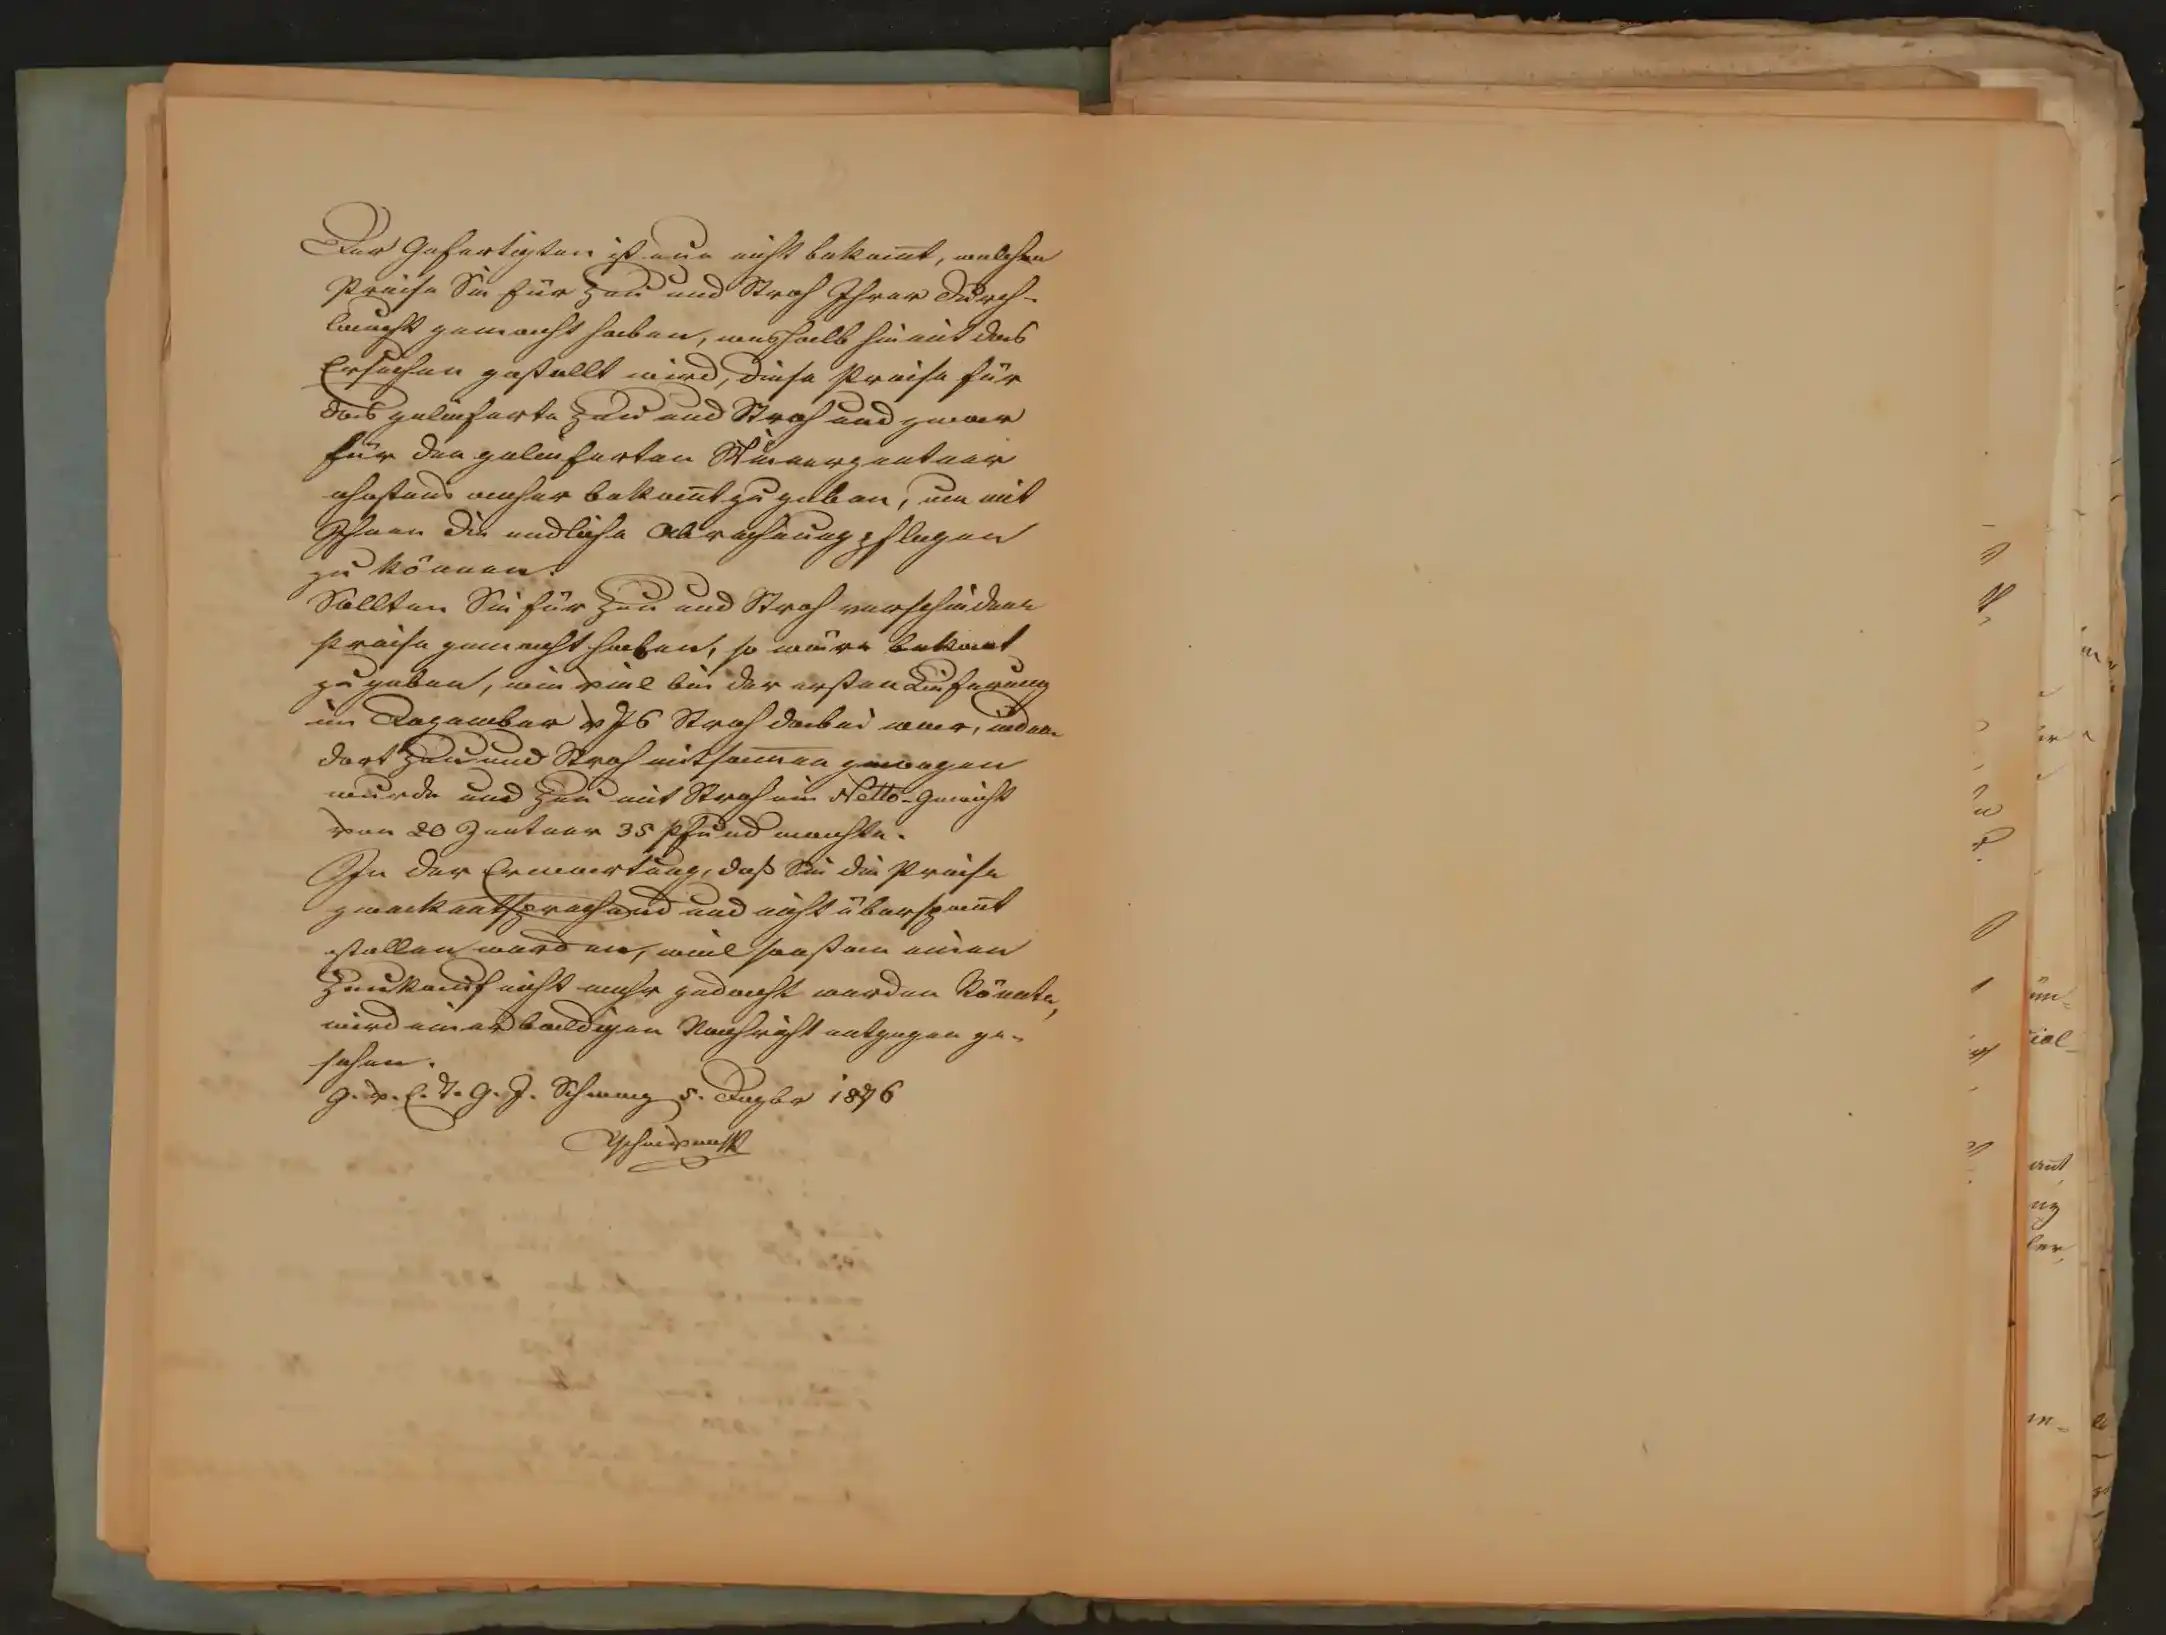 Der Gefertigten ist nun nicht bekannt, welchen
Preise Sie für Heu und Stroh Ihrer Durch-
laucht gemacht haben, weshalb hiemit das
Ersuchen gestellt wird, diese Preise für
das gelieferte Heu und Stroh und zwar
für den gelieferten Wienerzentner
ehestens anher bekannt zu geben, um mit
Ihnen die endliche Abrechnung pflegen
zu können.
Sollten Sie für Heu und Stroh verschiedene
Preise gemacht haben, so wäre bekannt
zu geben, wie viel bei der ersten Lieferung
im Dezember Stroh dabei war, indem
dort Heu und Stroh mitsammen gewogen
wurde und Heu mit Stroh ein Netto-Gewicht
von 20 Zentner 35 Pfund machte.
In der Erwartung, daß Sie die Preise
zweckentsprechend und nicht überspannt
stellen werden, weil sonst an einen
Heukauf nicht mehr gedacht werden könnte,
wird einer baldigen Nachricht entgegen ge-
sehen.
5. Dezbr 1876